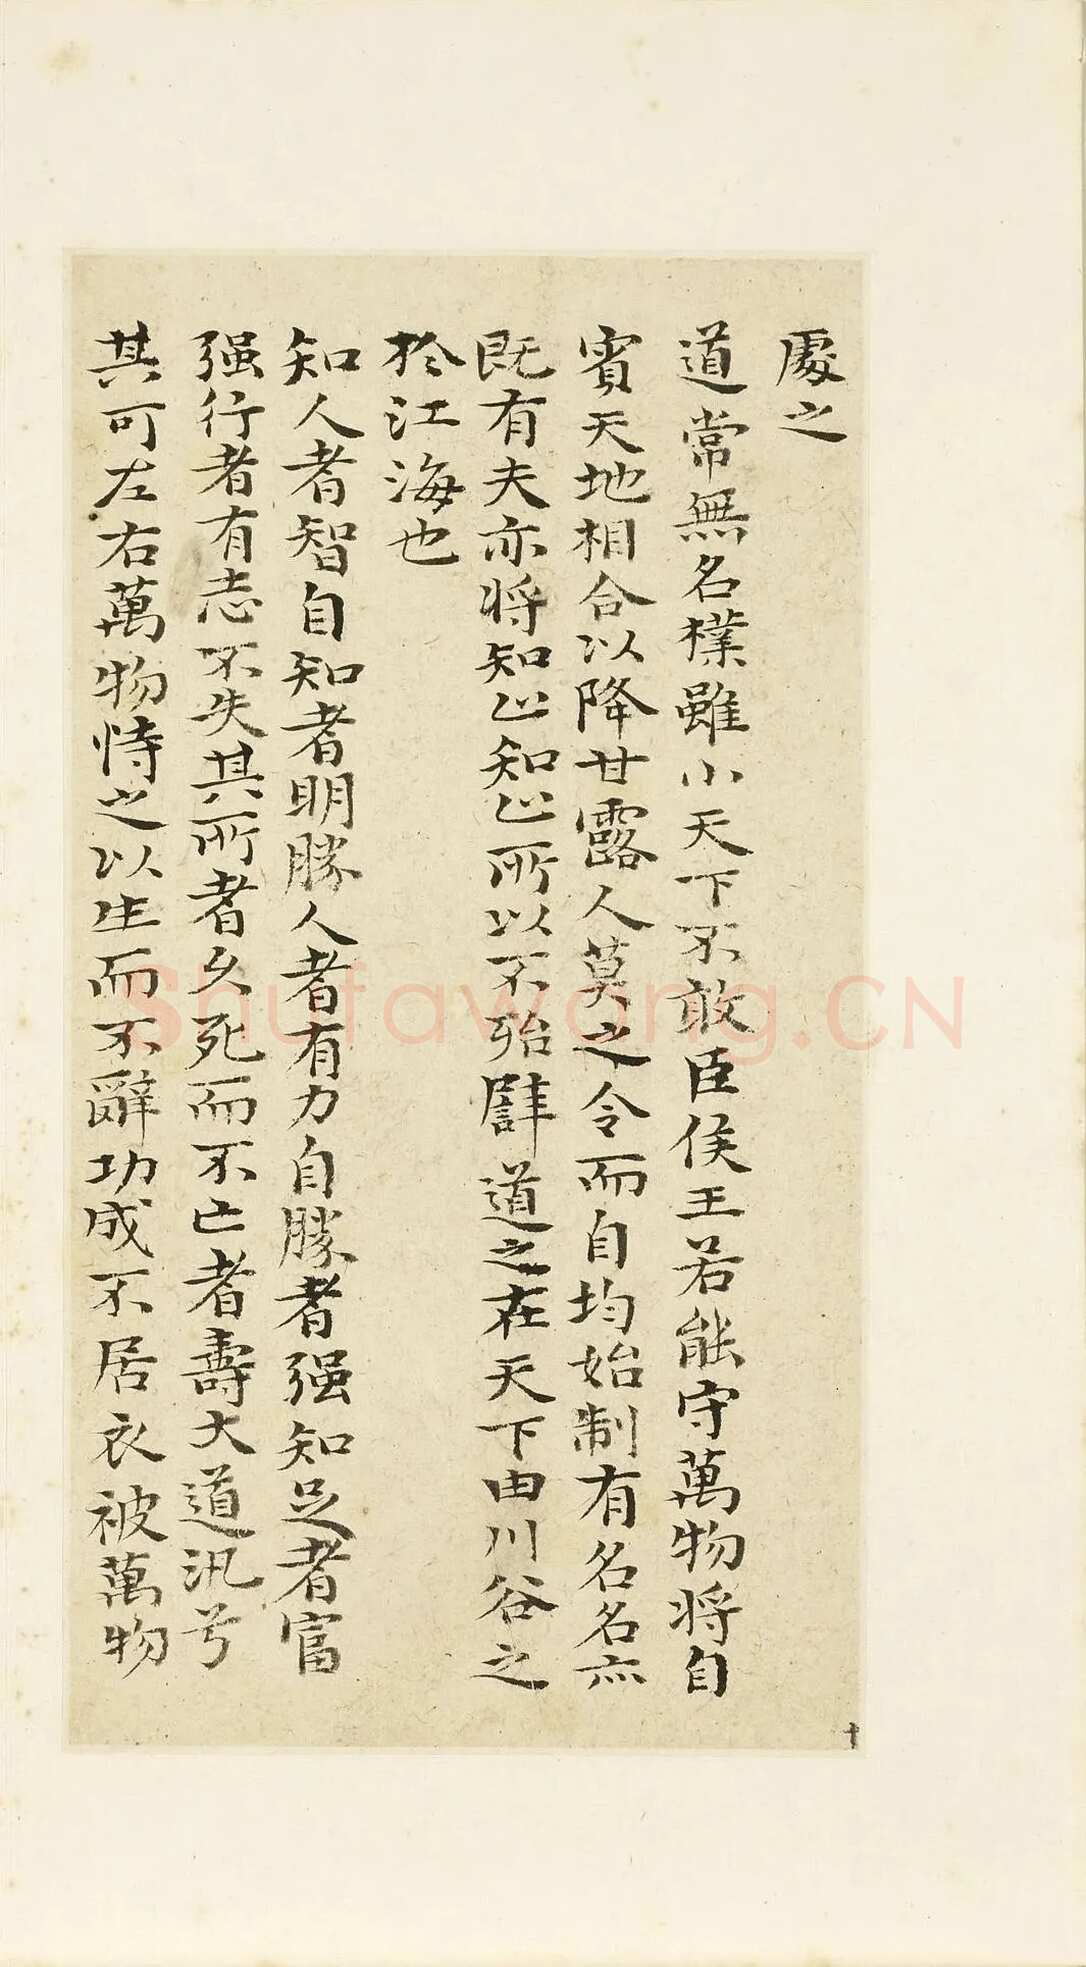 處之
道常無名樸雖小天下不敢臣侯王若能守萬物將自
賓天地相合以降甘露人莫之令而自均始制有名名亦
既有夫亦将知止知止所以不殆譬道之在天下由川谷之
於江海也
知人者智自知者明勝人者有力自勝者强知足者富
强行者有志不失其所者久死而不亡者壽大道汎兮
其可左右萬物恃之以生而不辭功成不居衣被萬物
十
Shufawang.CN